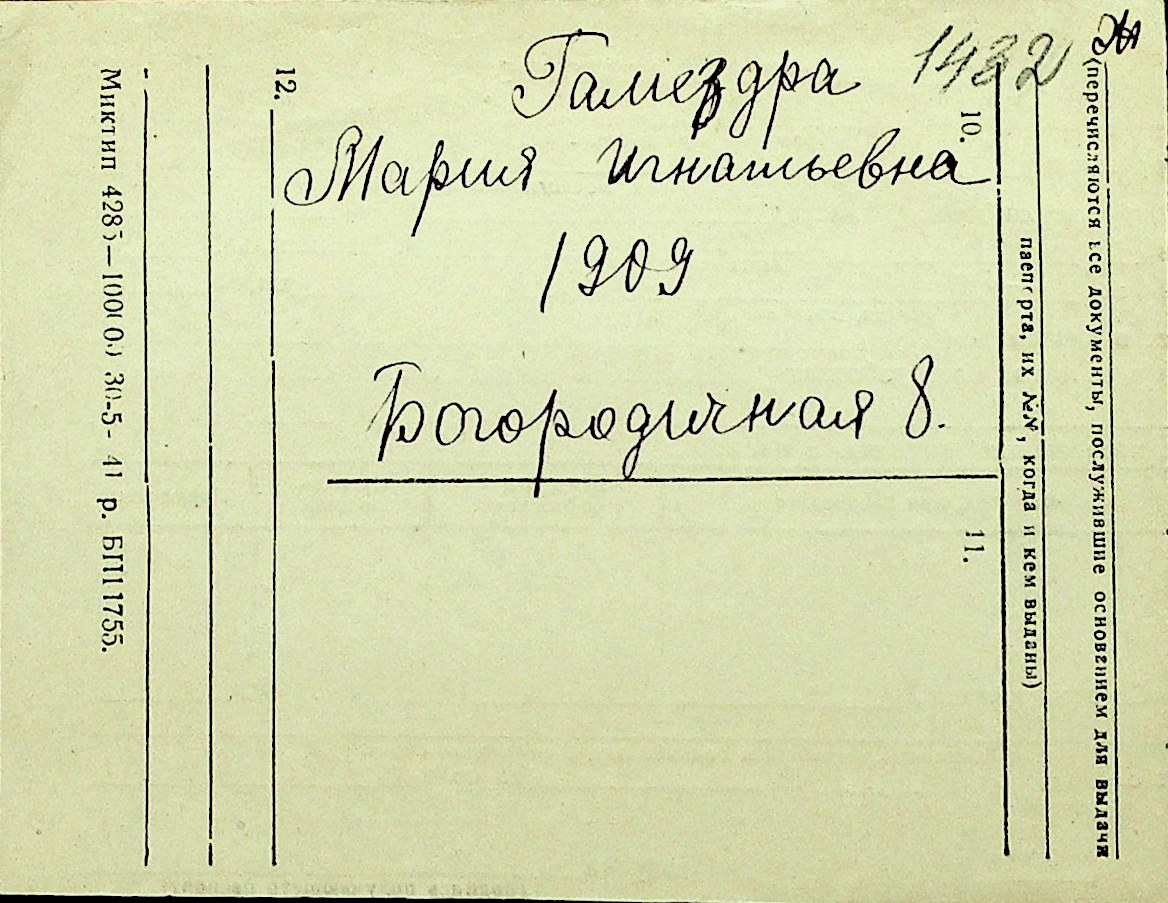 1432
Гамездра
Мария Игнатьевна
1909
Богородичная 8.
(перечисляются все документы, послужившие основанием для выдачи
паспорта, их №№, когда и кем выданы)
10.
11.
12.
Миктип 4285—10000 30-5-41 р. БП11755.